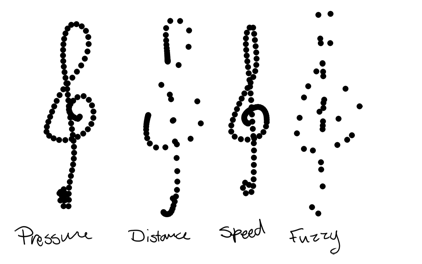 Pressure Distance Speed Fuzzy